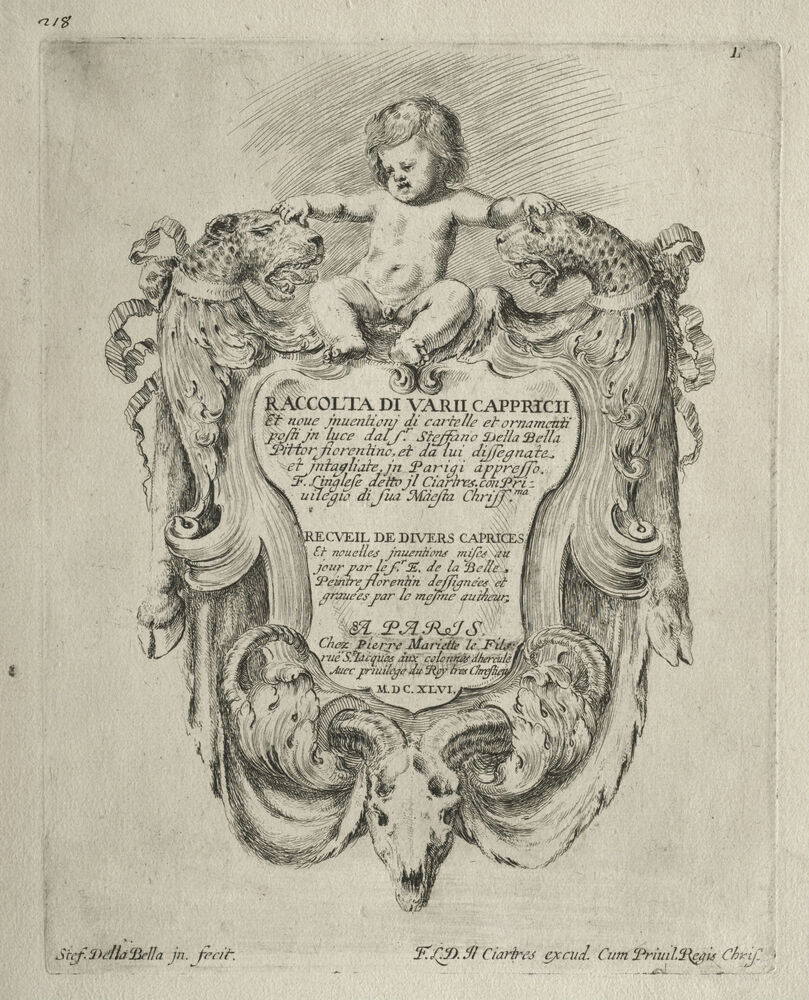 218
1.
RACCOLTA DI VARII CAPPRICII
Et noue jnuentionj di cartelle et ornamenti
posti jn luce dal s.r Steffano Della Bella
Pittor fiorentino, et da lui dissegnate
et jntagliate, jn Parigi appresso.
F. L'inglese detto jl Ciartres, con Pri=
uilegio di sua Maesta Chriss.ma
RECVEIL DE DIVERS CAPRICES
Et nouelles jnuentions mises au
jour par le s.r E. de la Belle.
Peintre florentin dessignées et
grauées par le mesme autheur,
A PARIS.
Chez Pierre Mariette le Fils,
rue S. Jacques aux colonnes d'hercule
Auec priuilege du Roy tres Chrestien
M.DC.XLVI.
Stef. Della Bella jn. fecit.
F.L.D. Jl Ciartres excud. Cum Priuil. Regis Chris.